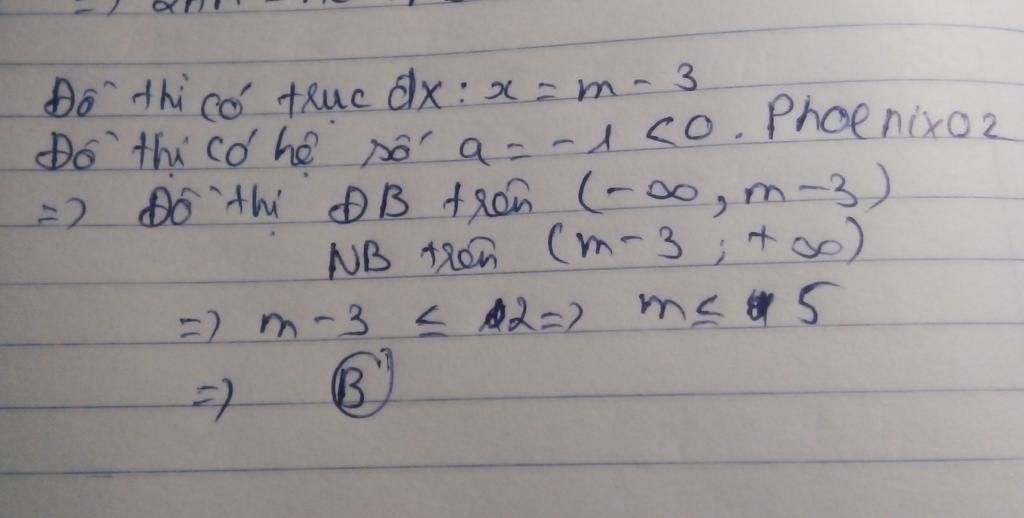 Đồ thị có trục đx: x = m - 3
Đồ thị có hệ số a = -1 < 0. Phoenix02
=> Đồ thị ĐB trên (-∞, m-3)
NB trên (m-3; +∞)
=> m - 3 ≤ 2 => m ≤ 5
=> B